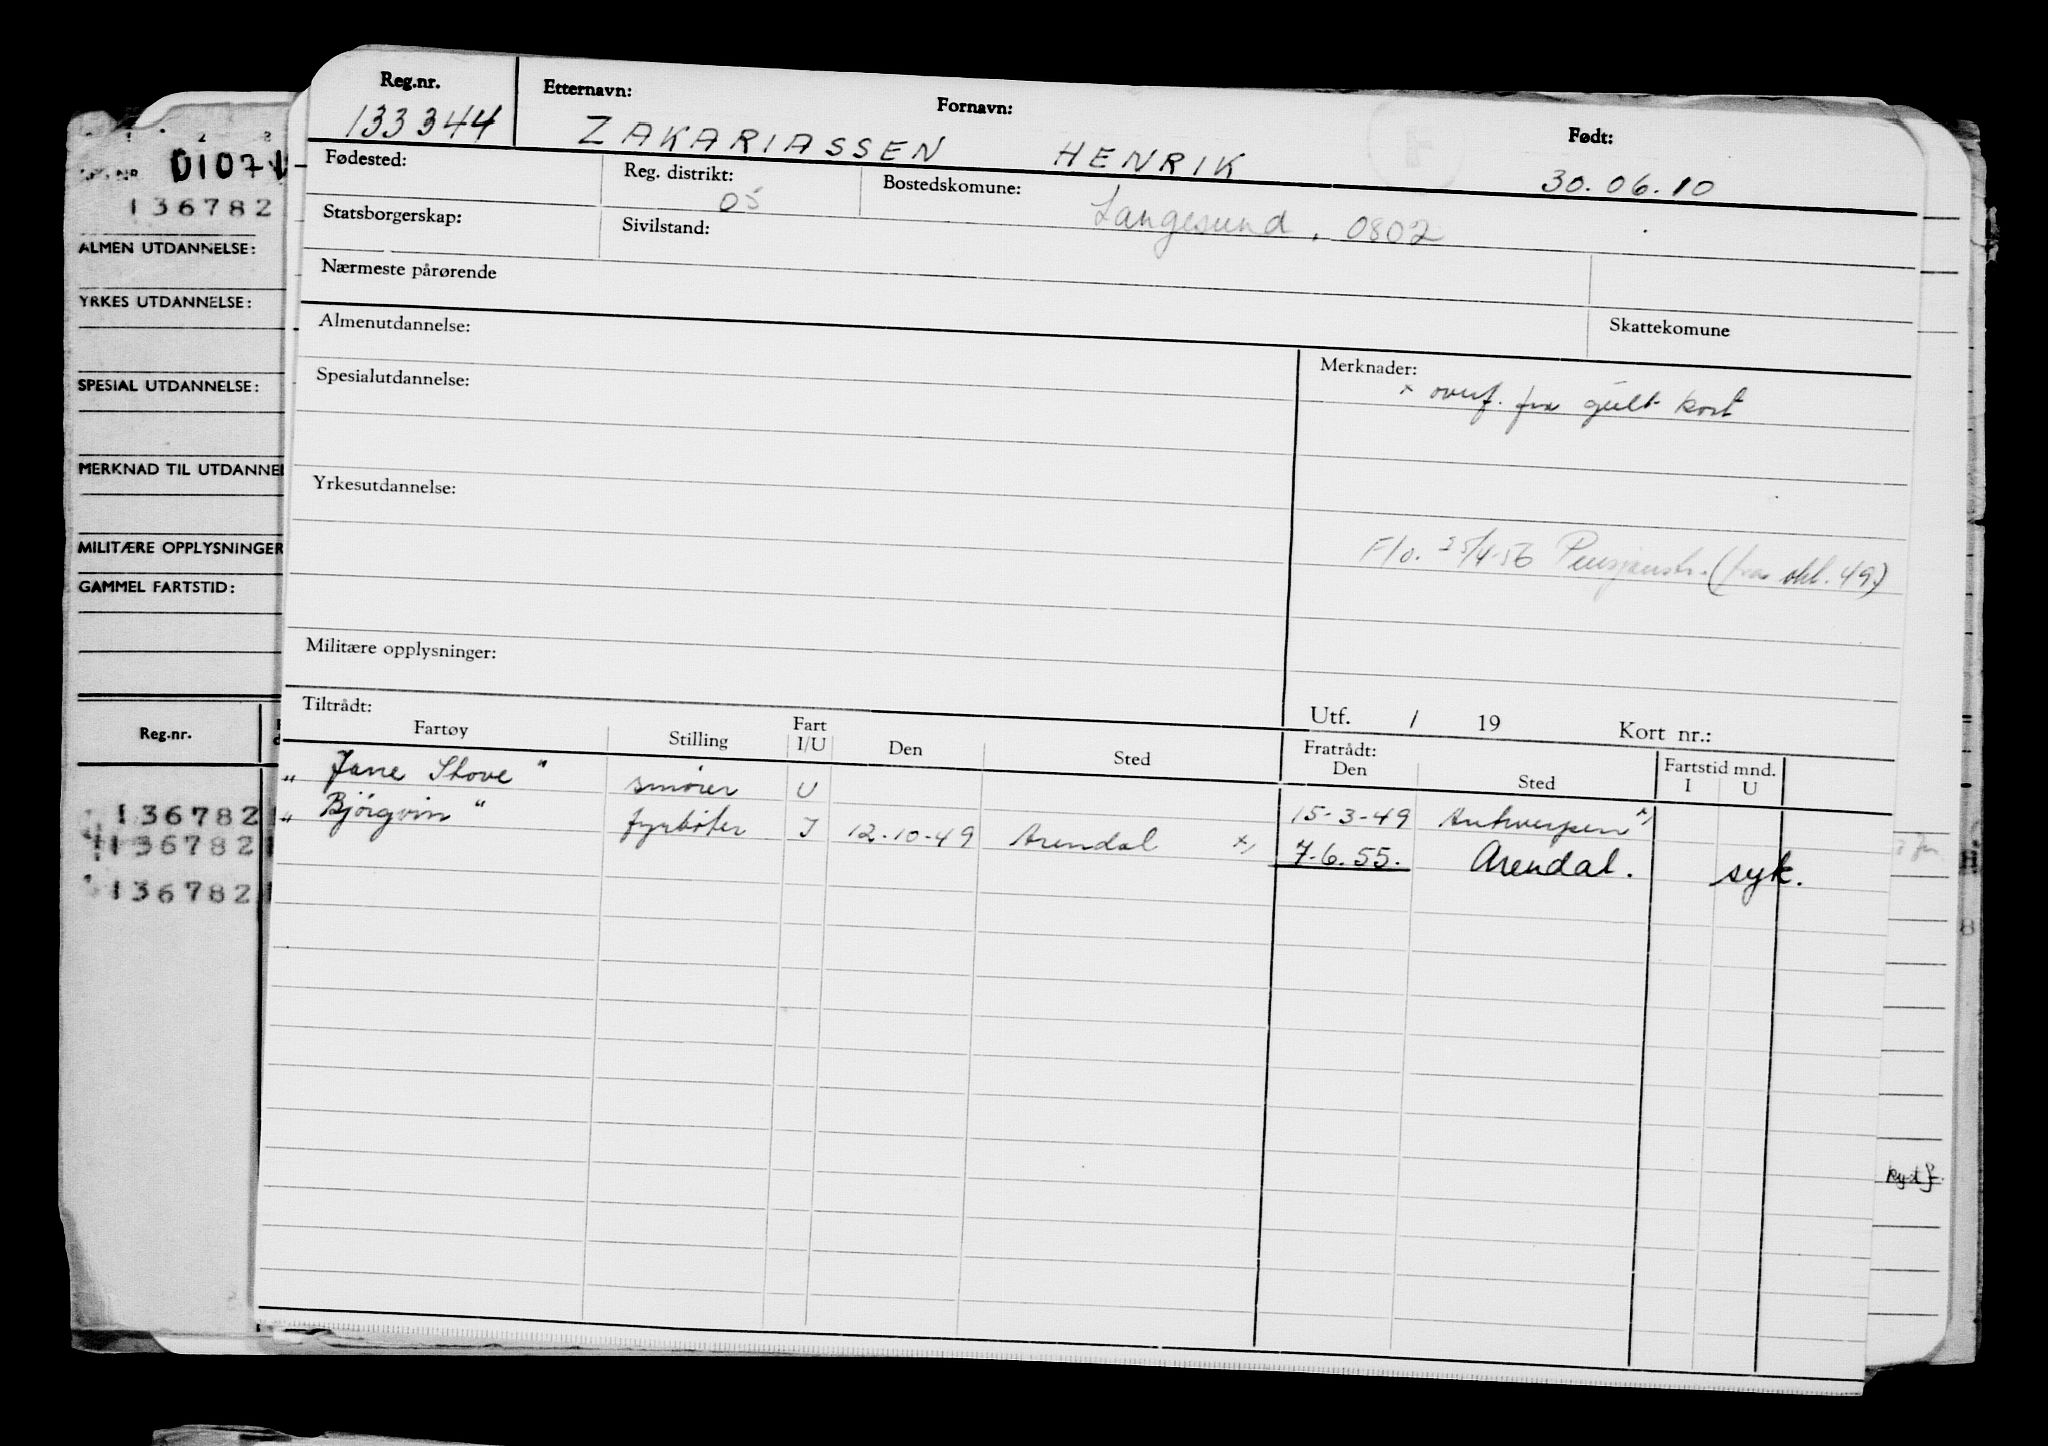 Reg.nr. Etternavn: Fornavn: Født:
133344 ZAKARIASSEN HENRIK 30.06.10
Fødested: Reg. distrikt: 05 Bostedskomune: Langesund, 0802
Statsborgerskap: Sivilstand:
Nærmeste pårørende
Skattekomune
Almenutdannelse:
Merknader:
x overf. fra gult kort
Spesialutdannelse:
Yrkesutdannelse:
F/o. 25/4-56 Pensjonstr. (fra okt. 49)
Militære opplysninger:
Utf. / 19 Kort nr.:
Tiltrådt: Fratrådt:
Fartøy Stilling Fart I/U Den Sted Den Sted Fartstid mnd. I U
„ Jane Stove " smører U 15-3-49 Antwerpen x)
„ Bjørgvin " fyrbøter I 12-10-49 Arendal x) 7.6.55. Arendal. syk.
1 2 3
136782
ALMEN UTDANNELSE:
YRKES UTDANNELSE:
SPESIAL UTDANNELSE:
MERKNAD TIL UTDANNEL
MILITÆRE OPPLYSNINGER
GAMMEL FARTSTID:
Reg.nr.
136782
136782
136782
H
8